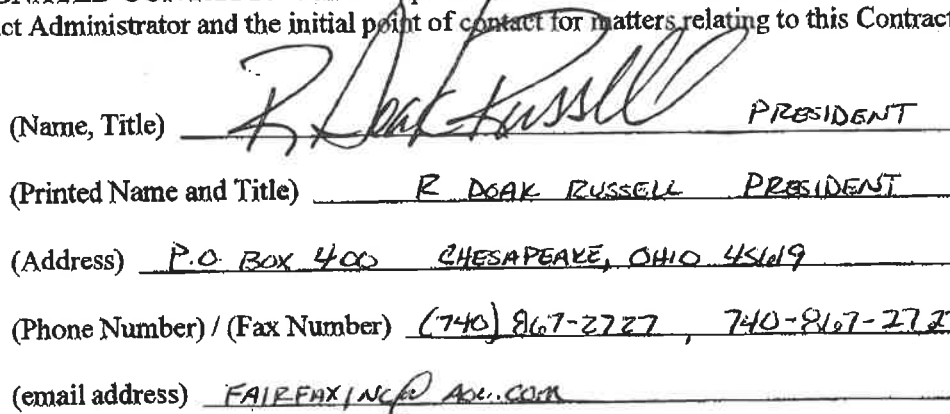 ct Administrator and the initial point of contact for matters relating to this Contract
(Name, Title) R Doak Russell PRESIDENT
(Printed Name and Title) R DOAK RUSSELL PRESIDENT
(Address) P.O. BOX 400 CHESAPEAKE, OHIO 45619
(Phone Number) / (Fax Number) (740) 867-2727, 740-867-272
(email address) FAIRFAXINC@AOL.COM